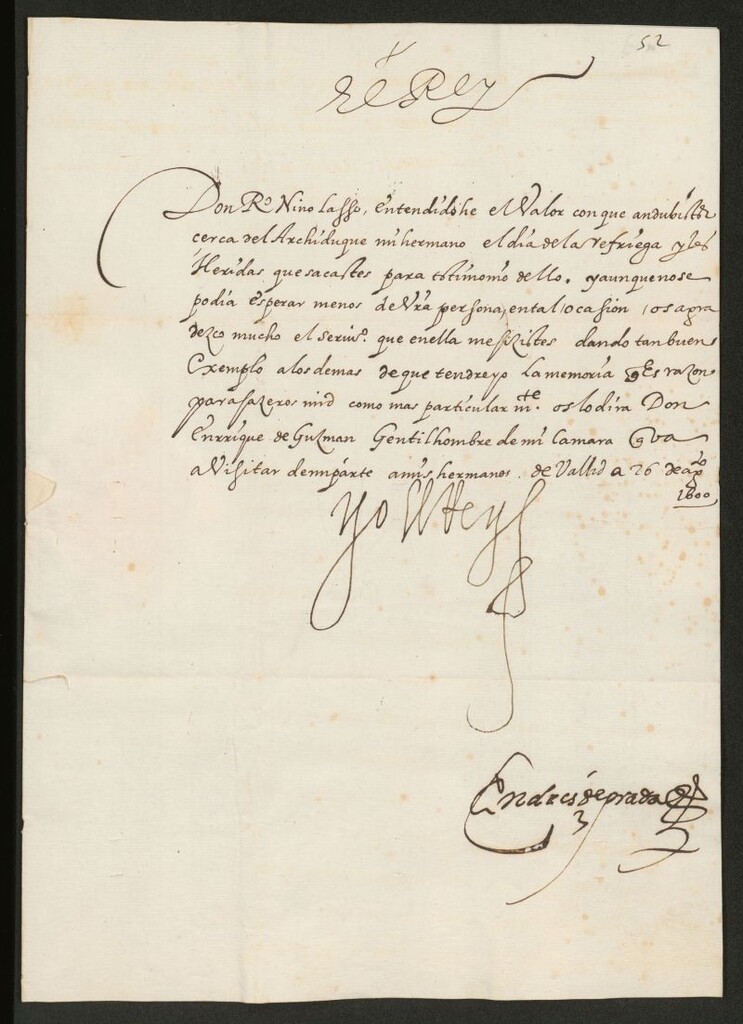 52
El Rey
Don Ro Nino Lasso, entendido he el Valor con que andubistes
cerca del Archiduque mi hermano el dia de la refriega y las
Heridas que sacastes para testimonio dello. y aunque no se
podia esperar menos de Vra persona, en tal ocasion, os agra
dezco mucho el servio. que en ella me hizistes dando tan buen
Exemplo a los demas de que tendre yo la memoria q es razon
para hazeros mrd como mas particular mte. os lo dira Don
Enrrique de Guzman Gentilhombre de mi Camara q va
a Visitar de mi parte a mis hermanos. de Vallid a 26 de ago
1600
Yo el Rey
Andres de prada